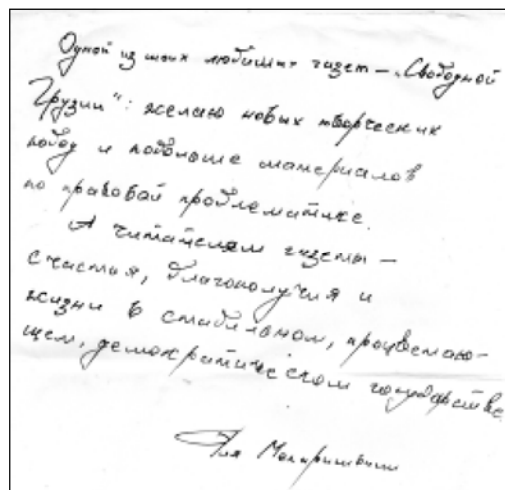 Одной из моих любимых газет – „Свободной
Грузии“: желаю новых творческих
побед и побольше материалов
по правовой проблематике.
А читателям газеты –
счастья, благополучия и
жизни в стабильном, процветаю-
щем, демократическом государстве.